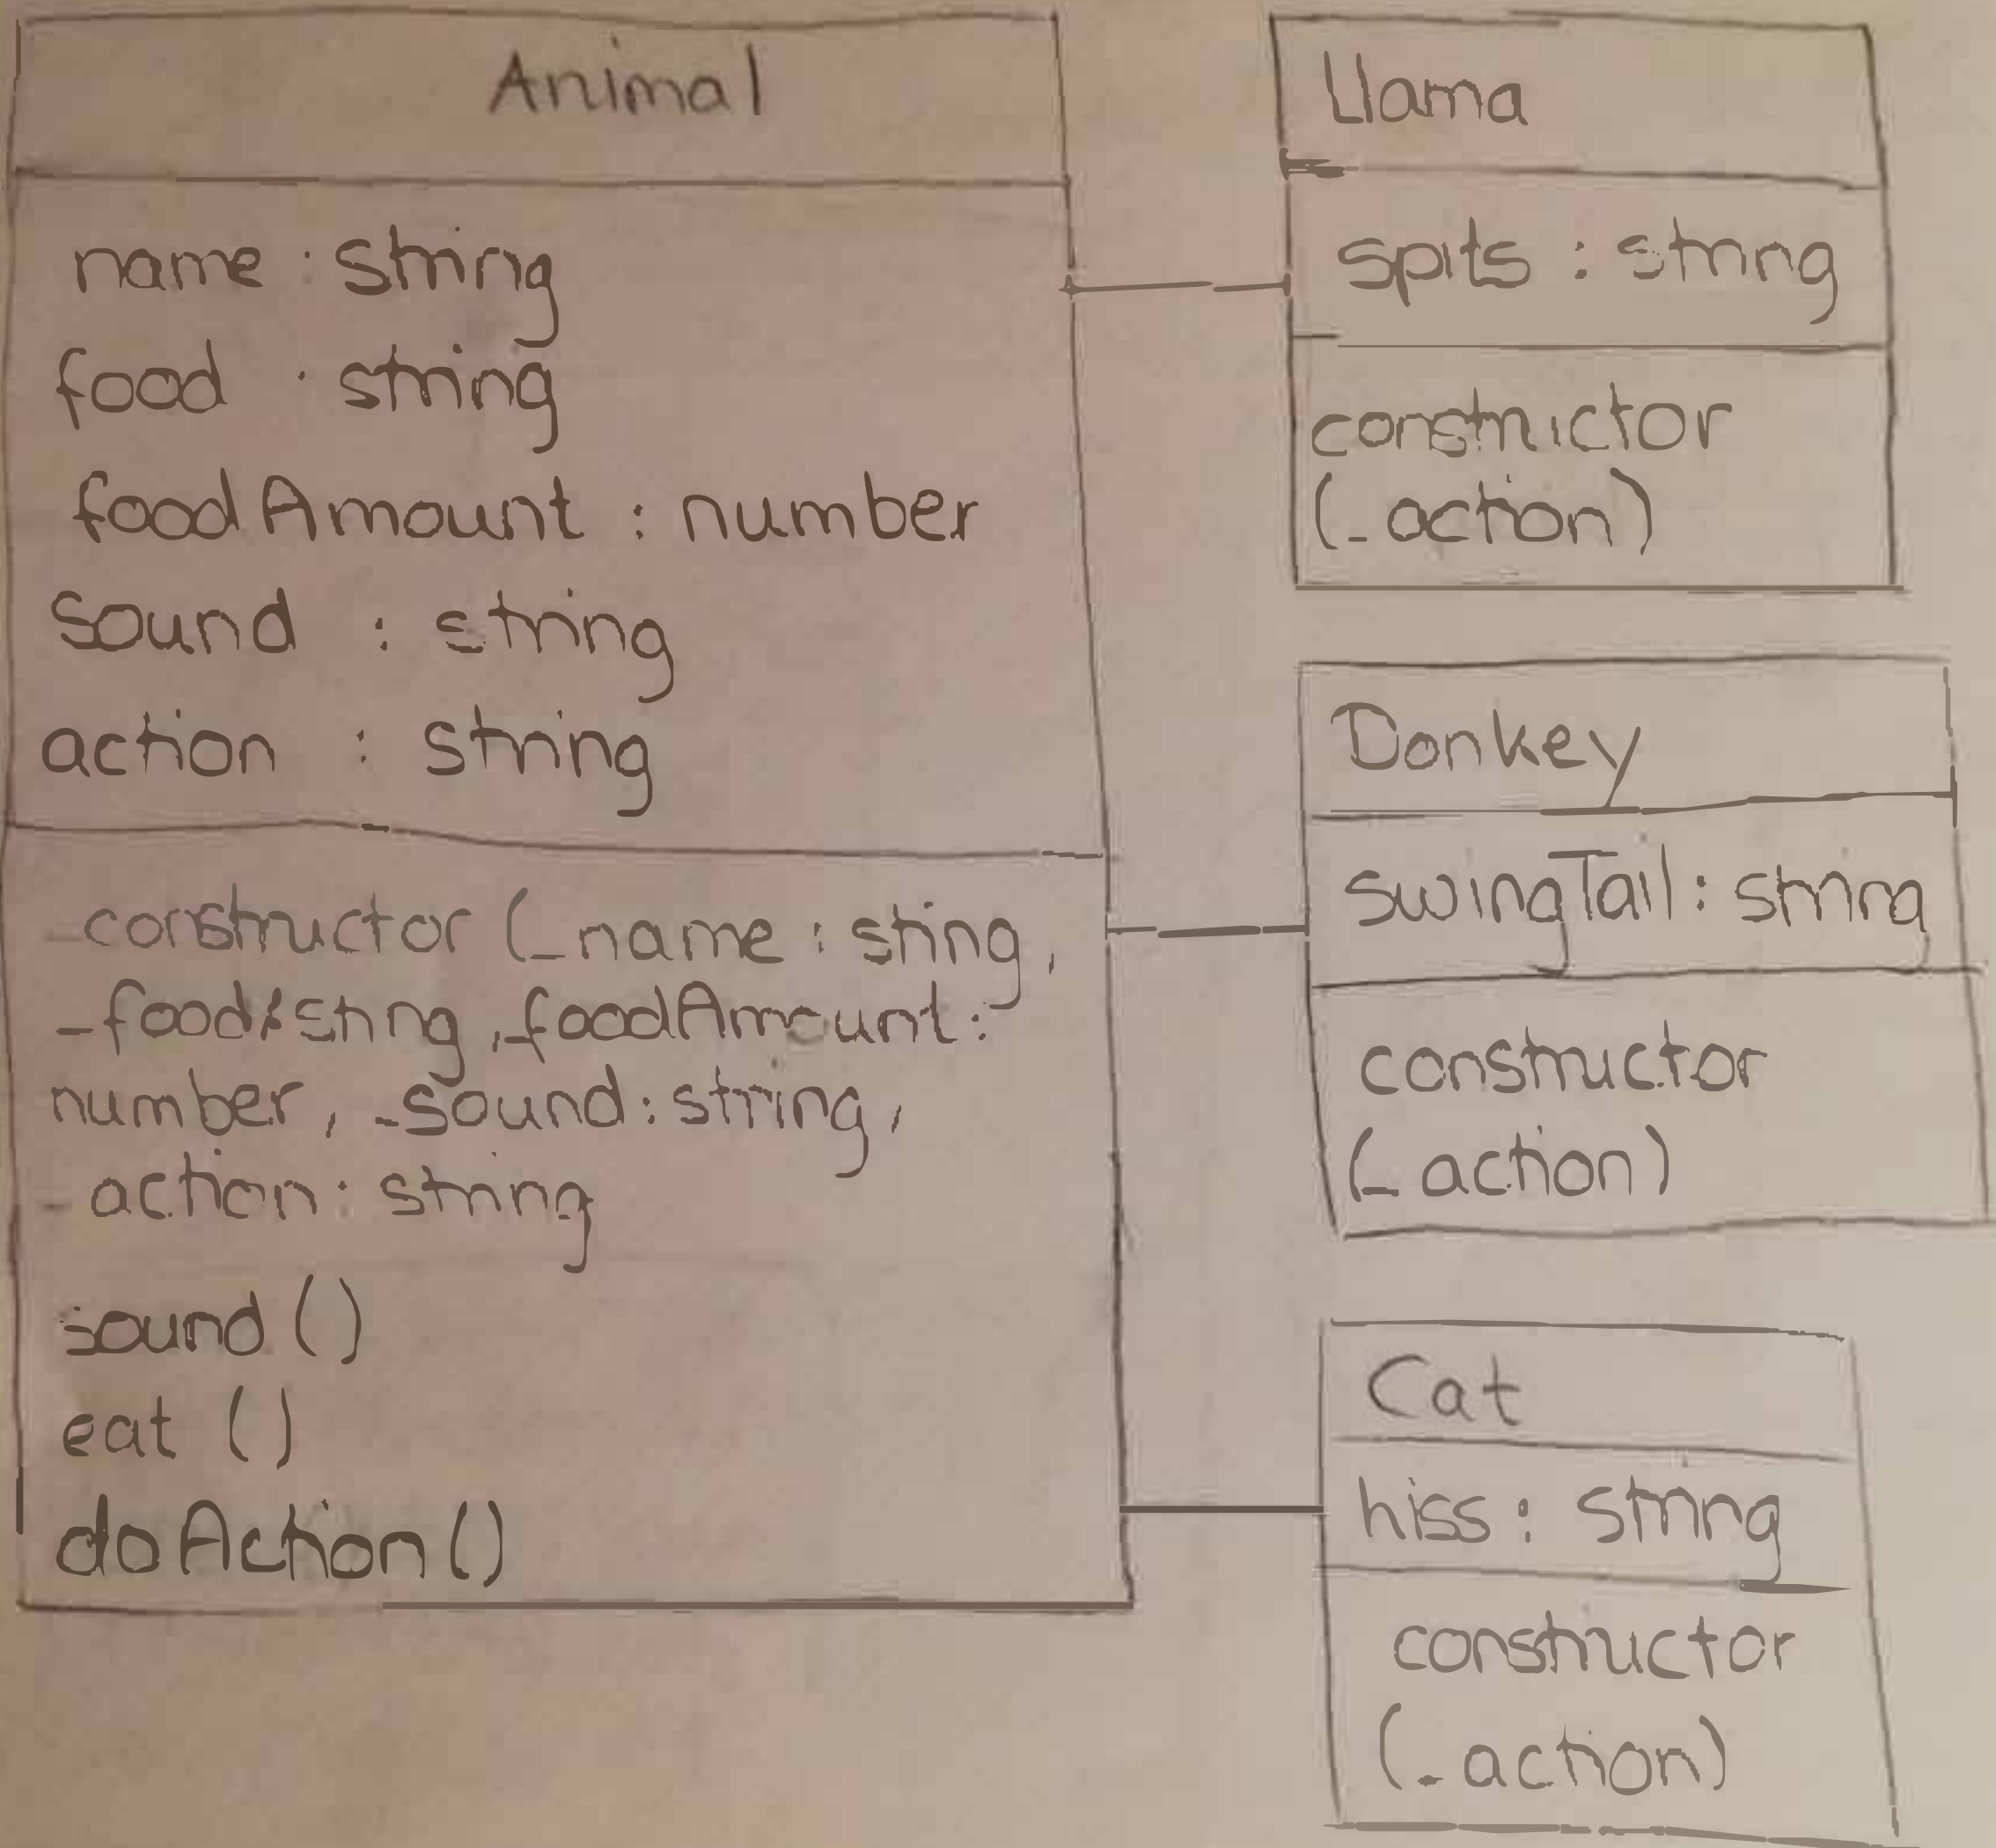 Animal
name : string
food : string
foodAmount : number
sound : string
action : string
-constructor (_name : sting,
_food:string, _foodAmount:
number, _sound: string,
_action: string
sound ()
eat ()
doAction()
Llama
spits : string
constructor
(_action)
Donkey
swingTail: string
constructor
(_action)
Cat
hiss : string
constructor
(_action)